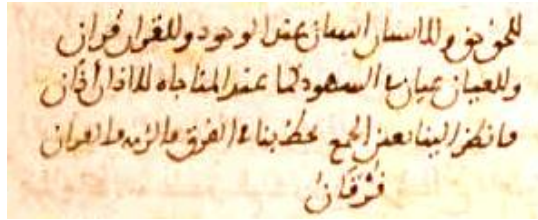 للحق حق وللانسان انسان عند الوجود وللقران قران
وللعيان عيان في الشهود كما عند المناجاه للاذان آذان
فانظر الينا بعين الجمع تحظ بنا في الفرق فالزمه فالقران
فُرْقَانُ